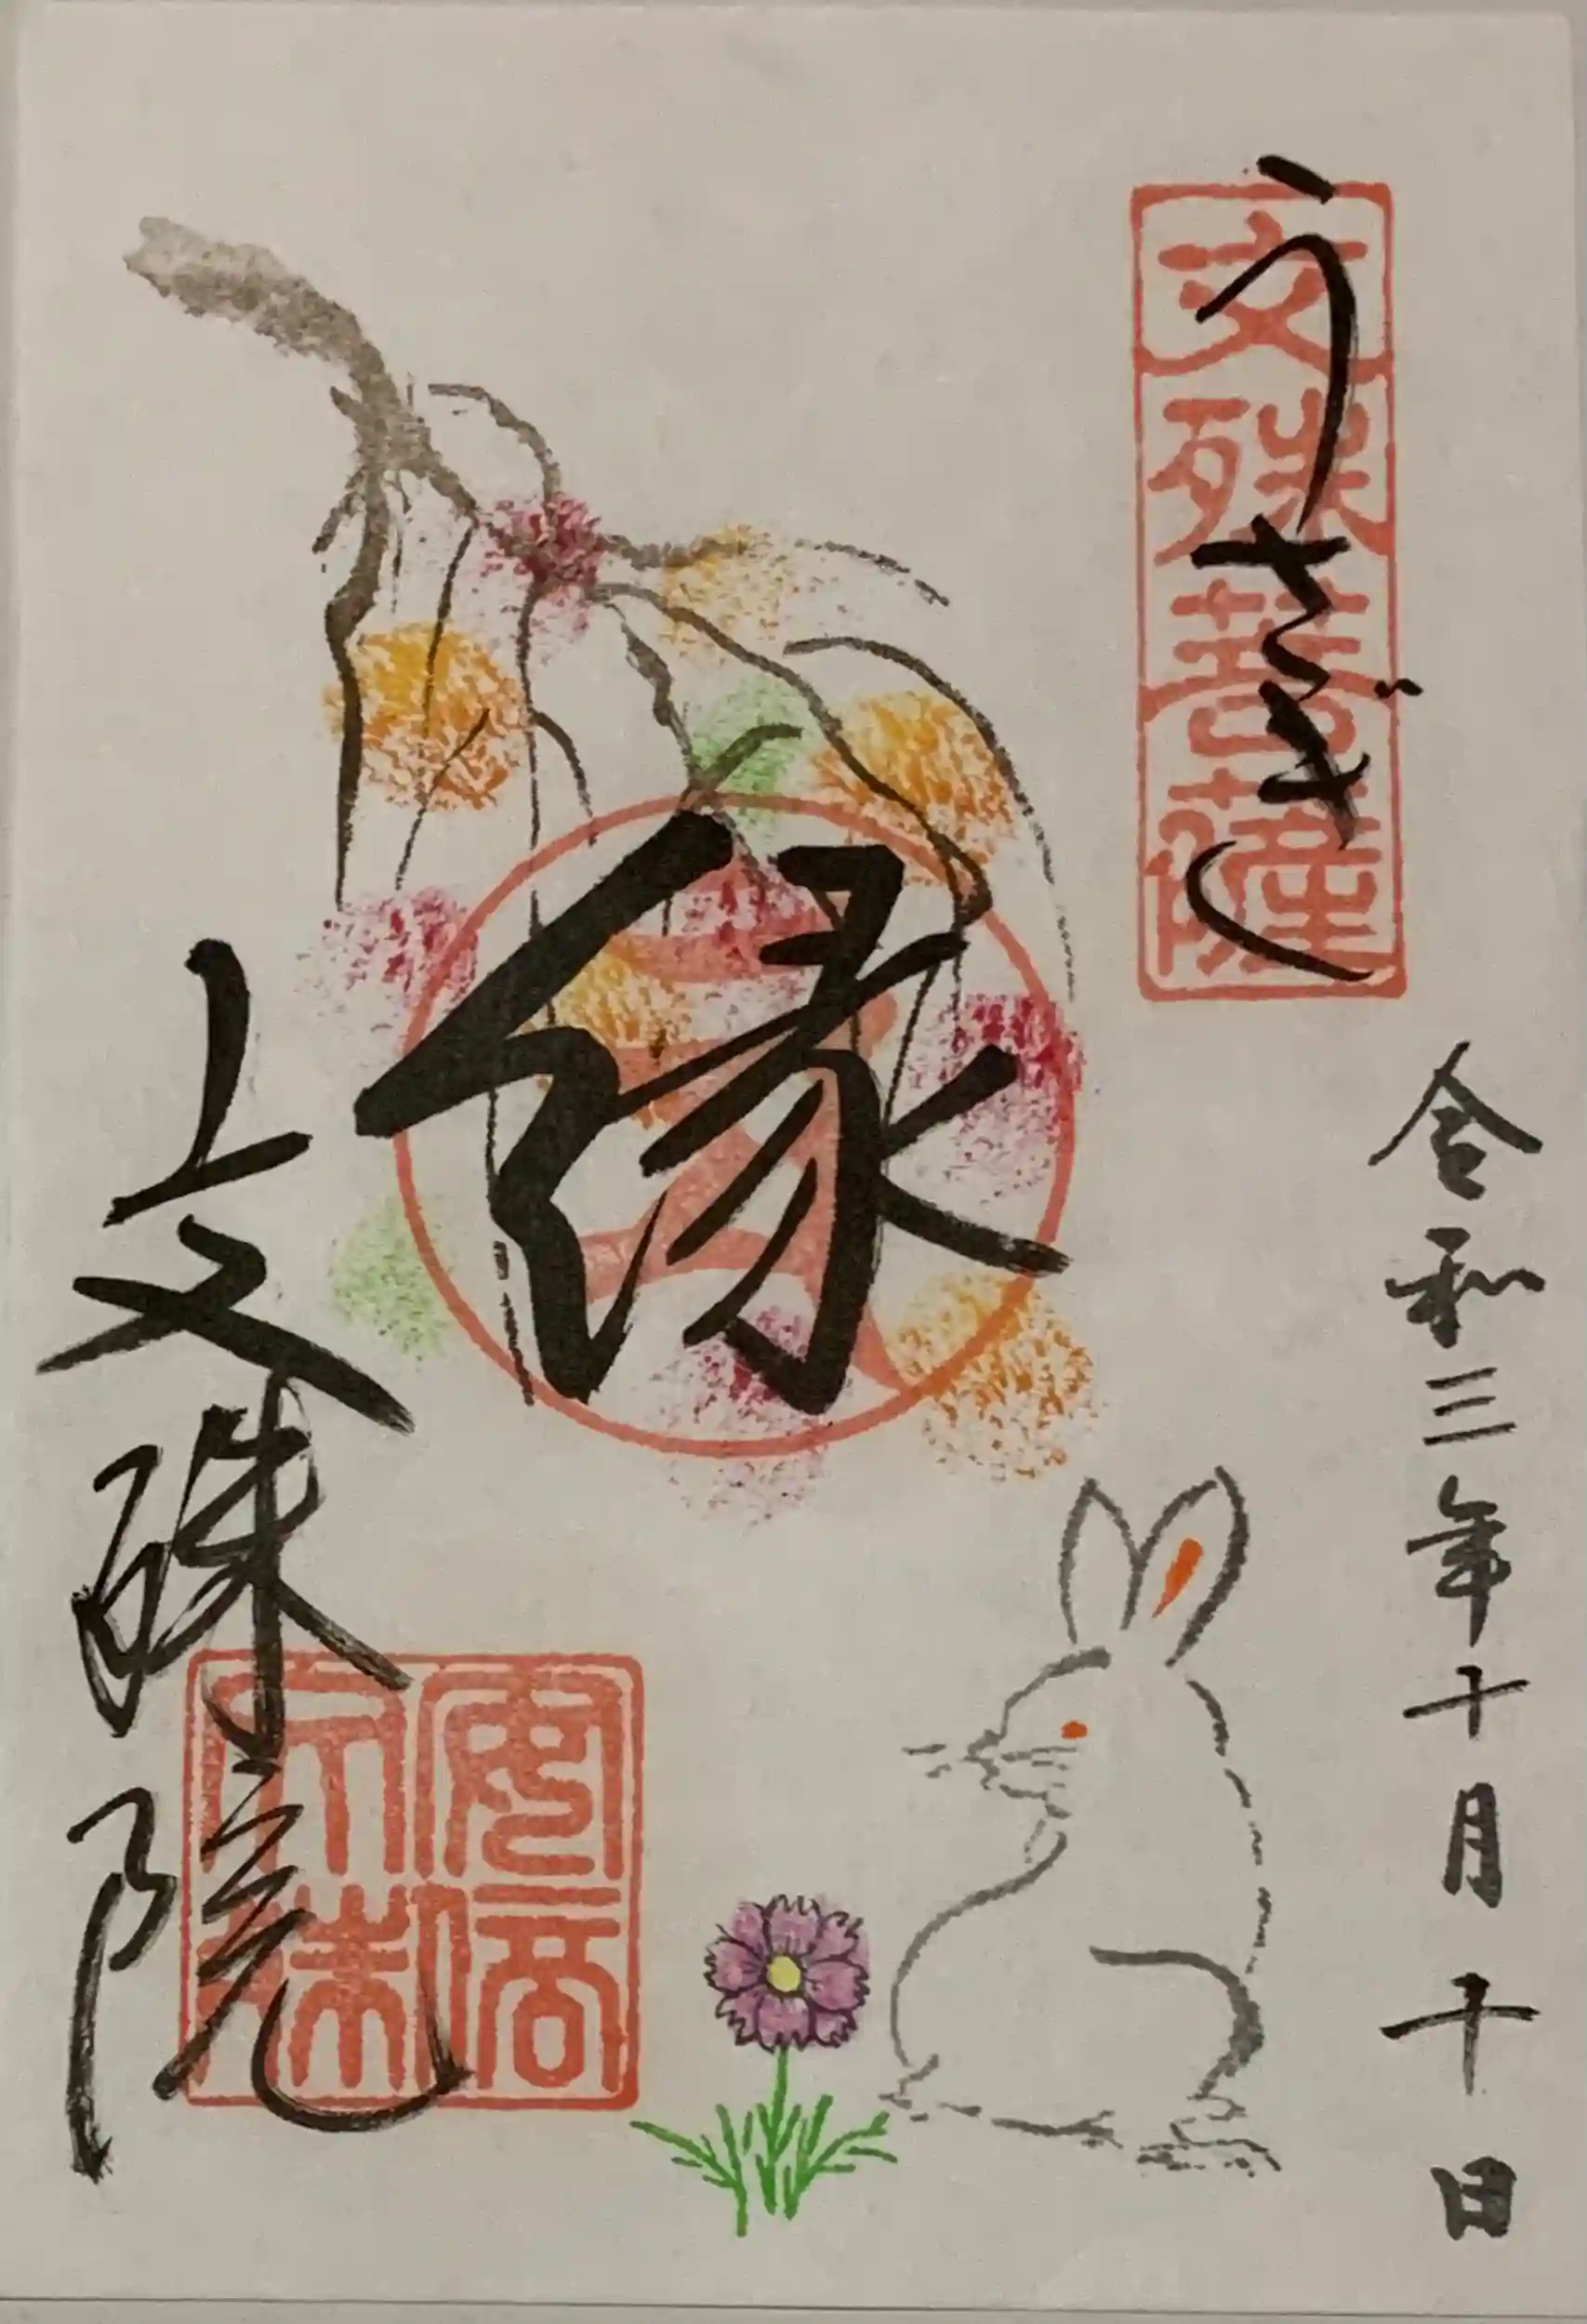 令和三年十月十日
うさぎ
文殊菩薩
縁
文殊院
安倍
文殊